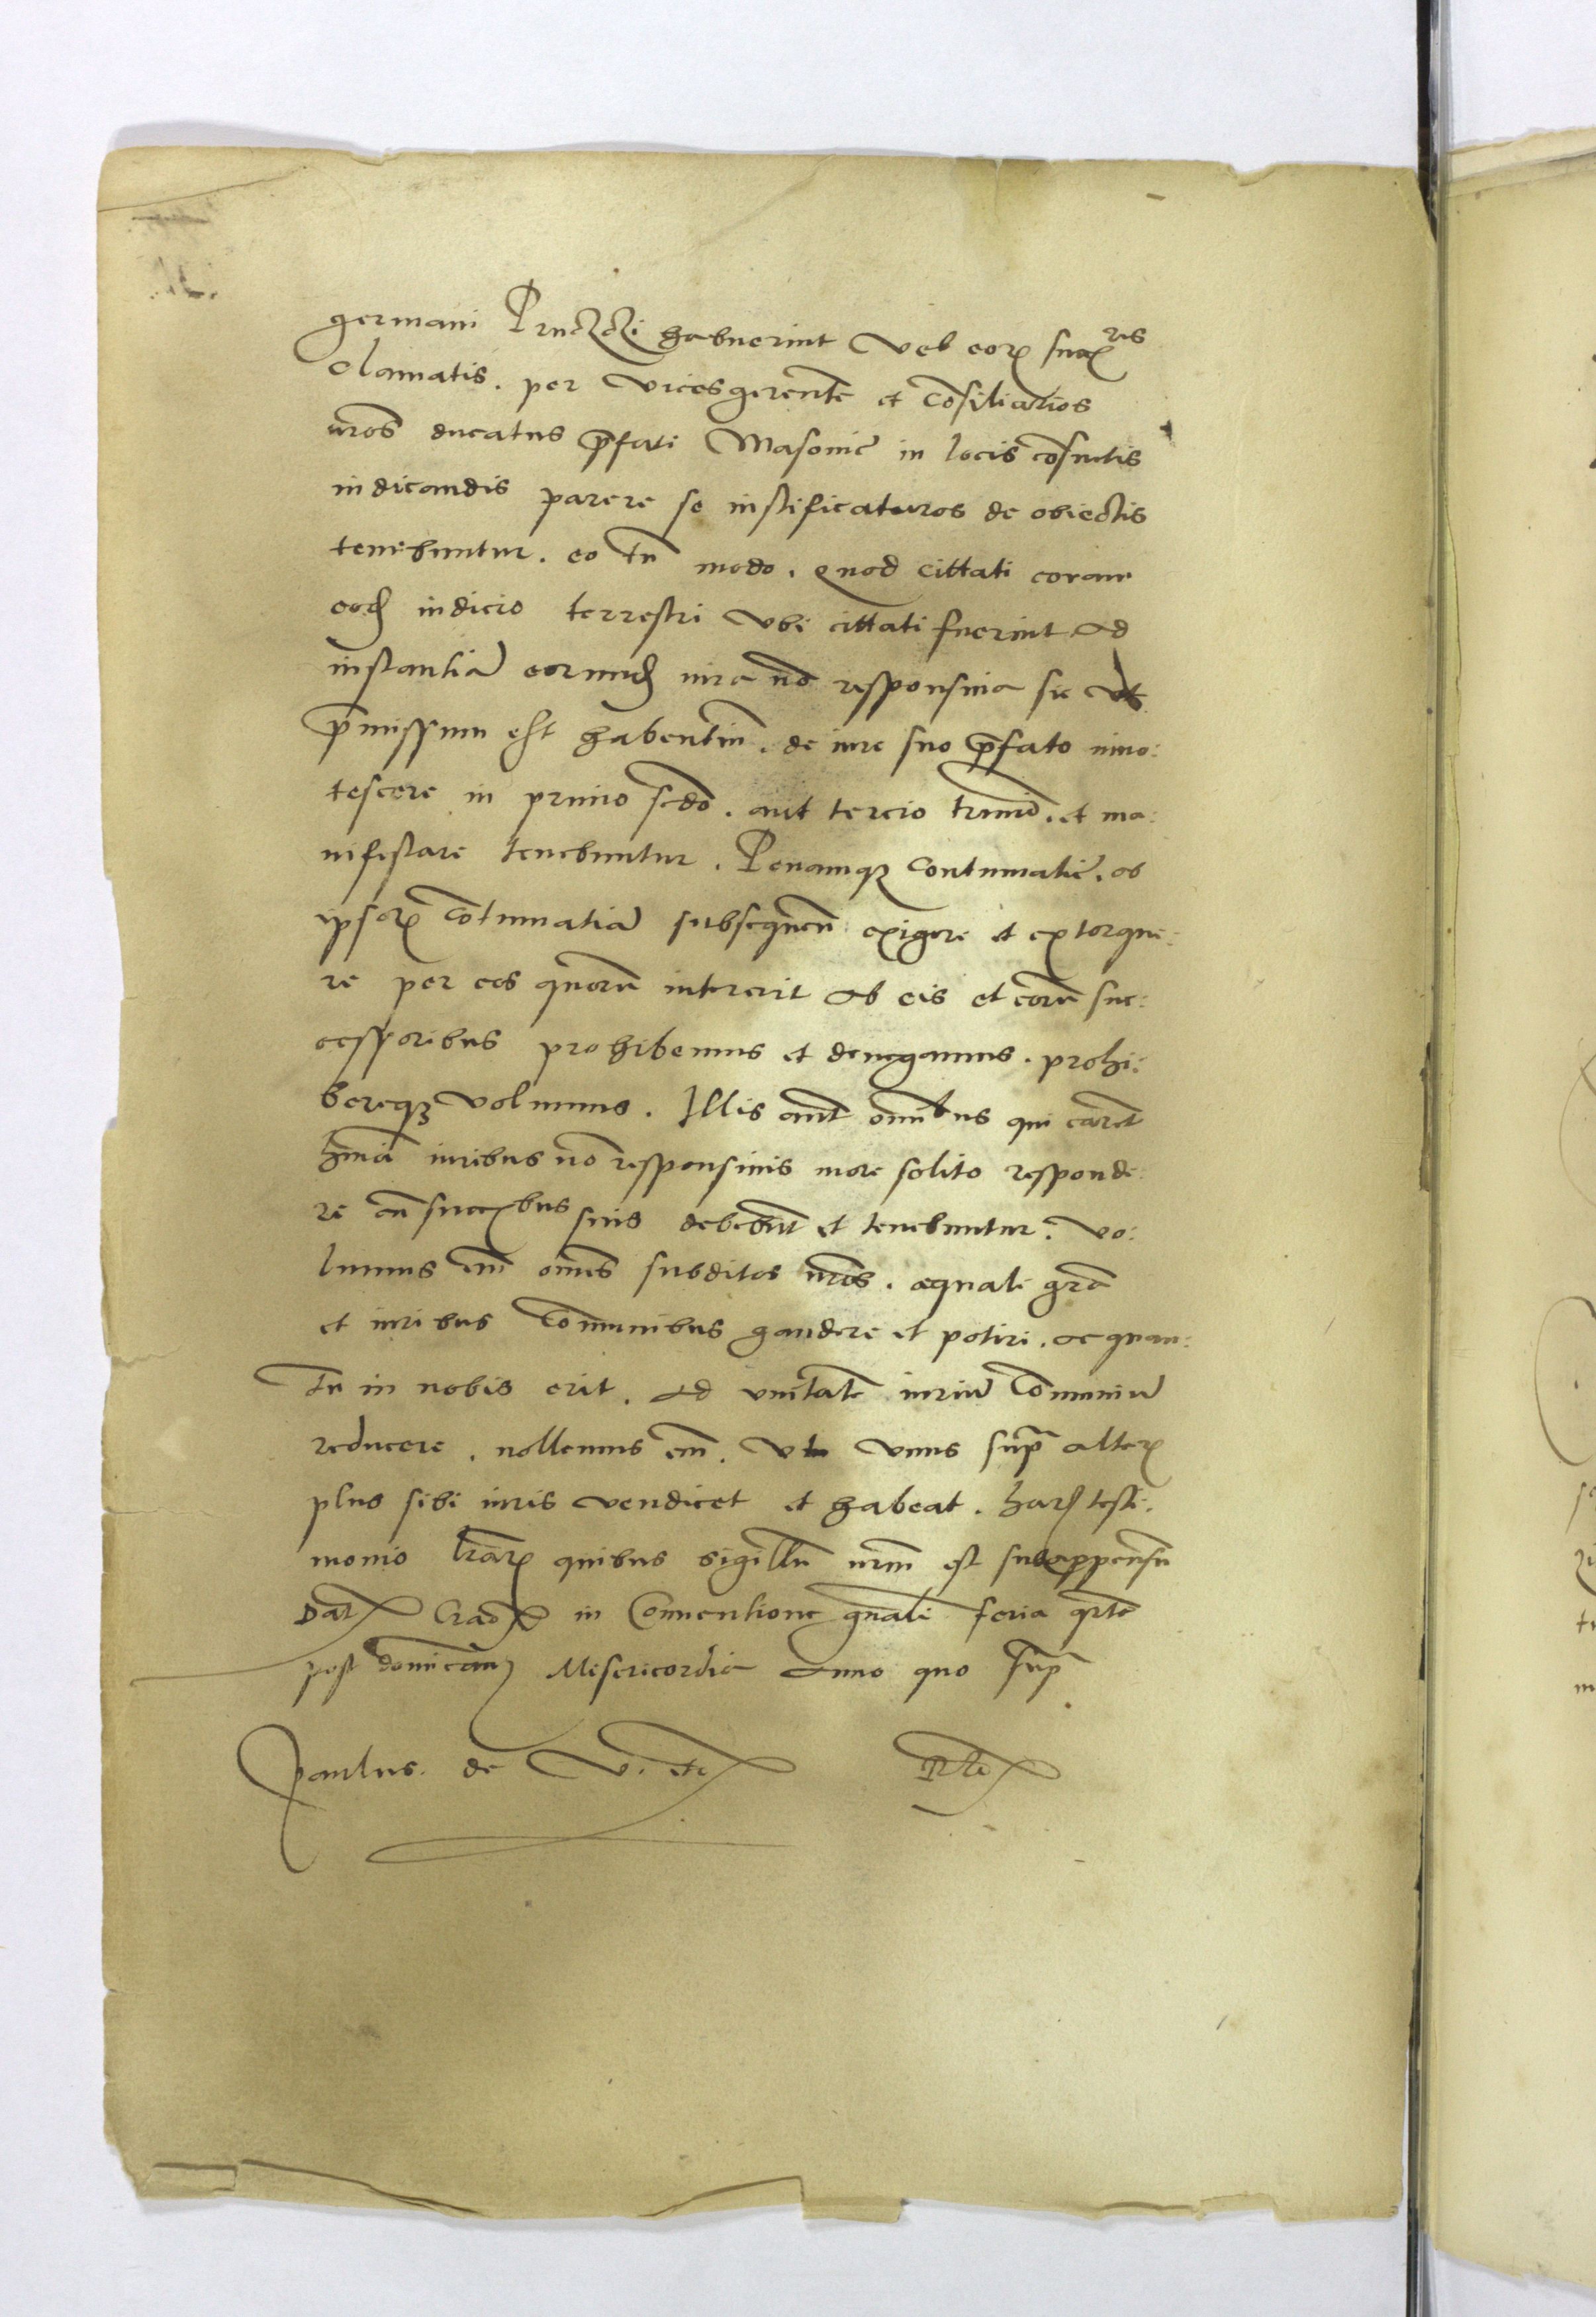 germani habuerint vel eorꝝ succꝭres
clamatis. per vicesgerentē et cōsiliarios
nr̄os ducatus p̄fati Masouiē in locis cōsuetis
iudicandis parere se iustificaturos de obiectis
tenebuntur. eo tn̄ modo. quod cittati coram
eodꝫ iudicio terrestri vbi cittati fuerint ad
instantiā eorundꝫ iura nō responsiua sic ut
p̄missum est habentiū. de iure suo p̄fato inno:
tescere in primo scd̄o. aut tercio tr̄mīo. et ma:
nifestare tenebuntur. Penamqꝫ contumatiē. ob
ipsorꝝ cōtumatiā subsequen̄ exigere et extorque:
re per eos quorū intererit ab eis et eorū suc:
cessoribus prohibemus et denegamus. prohi:
bereqꝫ volumus. Illis aūt omībus qui carēt
hm̄oi iuribus nō responsiuis more solito responde:
re cū succꝭbus suis debebūt et tenebuntur. vo:
lumus em̄ om̄es subditos nr̄os. equali grā
et iuribus cōmunibus gaudere et potiri. ac quan:
tū in nobis erit. ad vnitatē iuriū cōmuniū
reducere. nollemus em̄. vt vnus supra alterꝝ
plus sibi iuris vendicet et habeat. harꝫ testi:
monio lr̄arꝝ quibus sigillū nr̄m est subappensū
Datꝭ Cracꝭ in Conuentione gn̄ali feria qr̄ta
post dominicam Misericordie Anno quo supra
Paulus. de V. etcꝭ